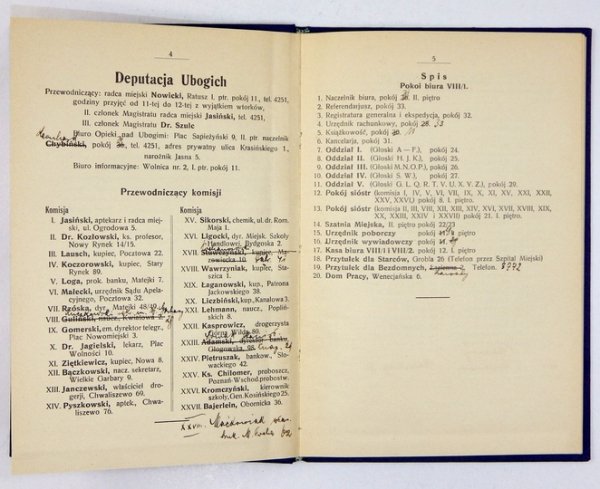 4
Deputacja Ubogich
Przewodniczący: radca miejski Nowicki, Ratusz I. ptr. pokój 11, tel. 4251,
godziny przyjęć od 11-tej do 12-tej z wyjątkiem wtorków,
II. członek Magistratu radca miejski Jasiński, tel. 4251,
III. członek Magistratu Dr. Szulc
Biuro Opieki nad Ubogimi: Plac Sapieżyński 9, II. ptr. naczelnik
Chybiński, pokój tel. 4251, adres prywatny ulica Krasińskiego 1,
narożnik Jasna 5.
Biuro informacyjne: Wolnica nr. 2, I. ptr. pokój 11.
Przewodniczący komisji
Komisja
I. Jasiński, aptekarz i radca miej-
ski, ul. Ogrodowa 5.
II. Dr. Kozłowski, ks. profesor,
Nowy Rynek 14/15.
III. Lausch, kupiec, Pocztowa 22.
IV. Koczorowski, kupiec, Stary
Rynek 89.
V. Loga, prok. banku, Matejki 7.
VI. Małecki, urzędnik Sądu Apela-
cyjnego, Pocztowa 32.
VII. Rzóska, dyr., Matejki 48/49
VIII. Guliński, naucz., Kwiatowa
IX. Gomerski, em. dyrektor telegr.,
Plac Nowomiejski 3.
X. Dr. Jagielski, lekarz, Plac
Wolności 10.
XI. Ziętkiewicz, kupiec, Nowa 8.
XII. Bączkowski, nacz. sekretarz,
Wielkie Garbary 9.
XIII. Janczewski, właściciel drogerji, Chwaliszewo 69.
XIV. Pyszkowski, aptek., Chwa-
liszewo 76.
Komisja
XV. Sikorski, chemik, ul. dr. Rom.
Maja 1.
XVI. Ligocki, dyr. Miejsk. Szkoły
Handlowej, Bydgoska 2.
XVII. Sławczyński, kupiec,
XVIII. Wawrzyniak, kupiec, Sta-
szica 1.
XIX. Łaganowski, kup., Patrona
Jackowskiego 38.
XX. Liezbiński, kup., Kanałowa 3.
XXI. Lehmann, naucz., Popliń-
skich 8.
XXII. Kasprowicz, drogerzysta
Górna Wilda 80.
XXIII. Adamski, dyrektor banku,
Głogowska 98.
XXIV. Pietruszak, bankow., Sło-
wackiego 42.
XXV. Ks. Chilomer, proboszcz,
Poznań-Wschod. probostw.
XXVI. Kromczyński, kierownik
szkoły, Gen. Kosińskiego 25.
XXVII. Bajerlein, Obornicka 36.
XXVIII. Maćkowiak
5
Spis
Pokoi biura VIII/I.
1. Naczelnik biura, pokój II. piętro
2. Referendarjusz, pokój 33.
3. Registratura generalna i ekspedycja, pokój 32.
4. Urzędnik rachunkowy, pokój 33
5. Książkowość, pokój
6. Kancelarja, pokój 31.
7. Oddział I. (Głoski A—F.), pokój 24.
8. Oddział II. (Głoski H. J. K.), pokój 25.
9. Oddział III. (Głoski M. N. O. P.), pokój 26.
10. Oddział IV. (Głoski S. W.), pokój 27.
11. Oddział V. (Głoski G. L. Q. R. T. V. U. X. V. Z.), pokój 29.
12. Pokój sióstr (komisja I, IV, V, VI, VII, IX, X, XI, XV, XXI, XXII,
XXV, XXVI,) pokój 8. I. piętro.
13. Pokój sióstr (komisja II, III, VIII, XII, XIII, XIV, XVI, XVII, XVIII, XIX,
XX, XXIII, XXIV i XXVII) pokój 21. I. piętro.
14. Szatnia Miejska, II. partero pokój 22/23
15. Urzędnik poborczy
16. Urzędnik wywiadowczy pokój
17. Kasa biura VIII/I i VIII/2, pokój 12. I. piętro.
18. Przytułek dla Starców, Grobla 26 (Telefon przez Szpital Miejski)
19. Przytułek dla Bezdomnych, Telefon.
20. Dom Pracy, Wenecjańska 6.